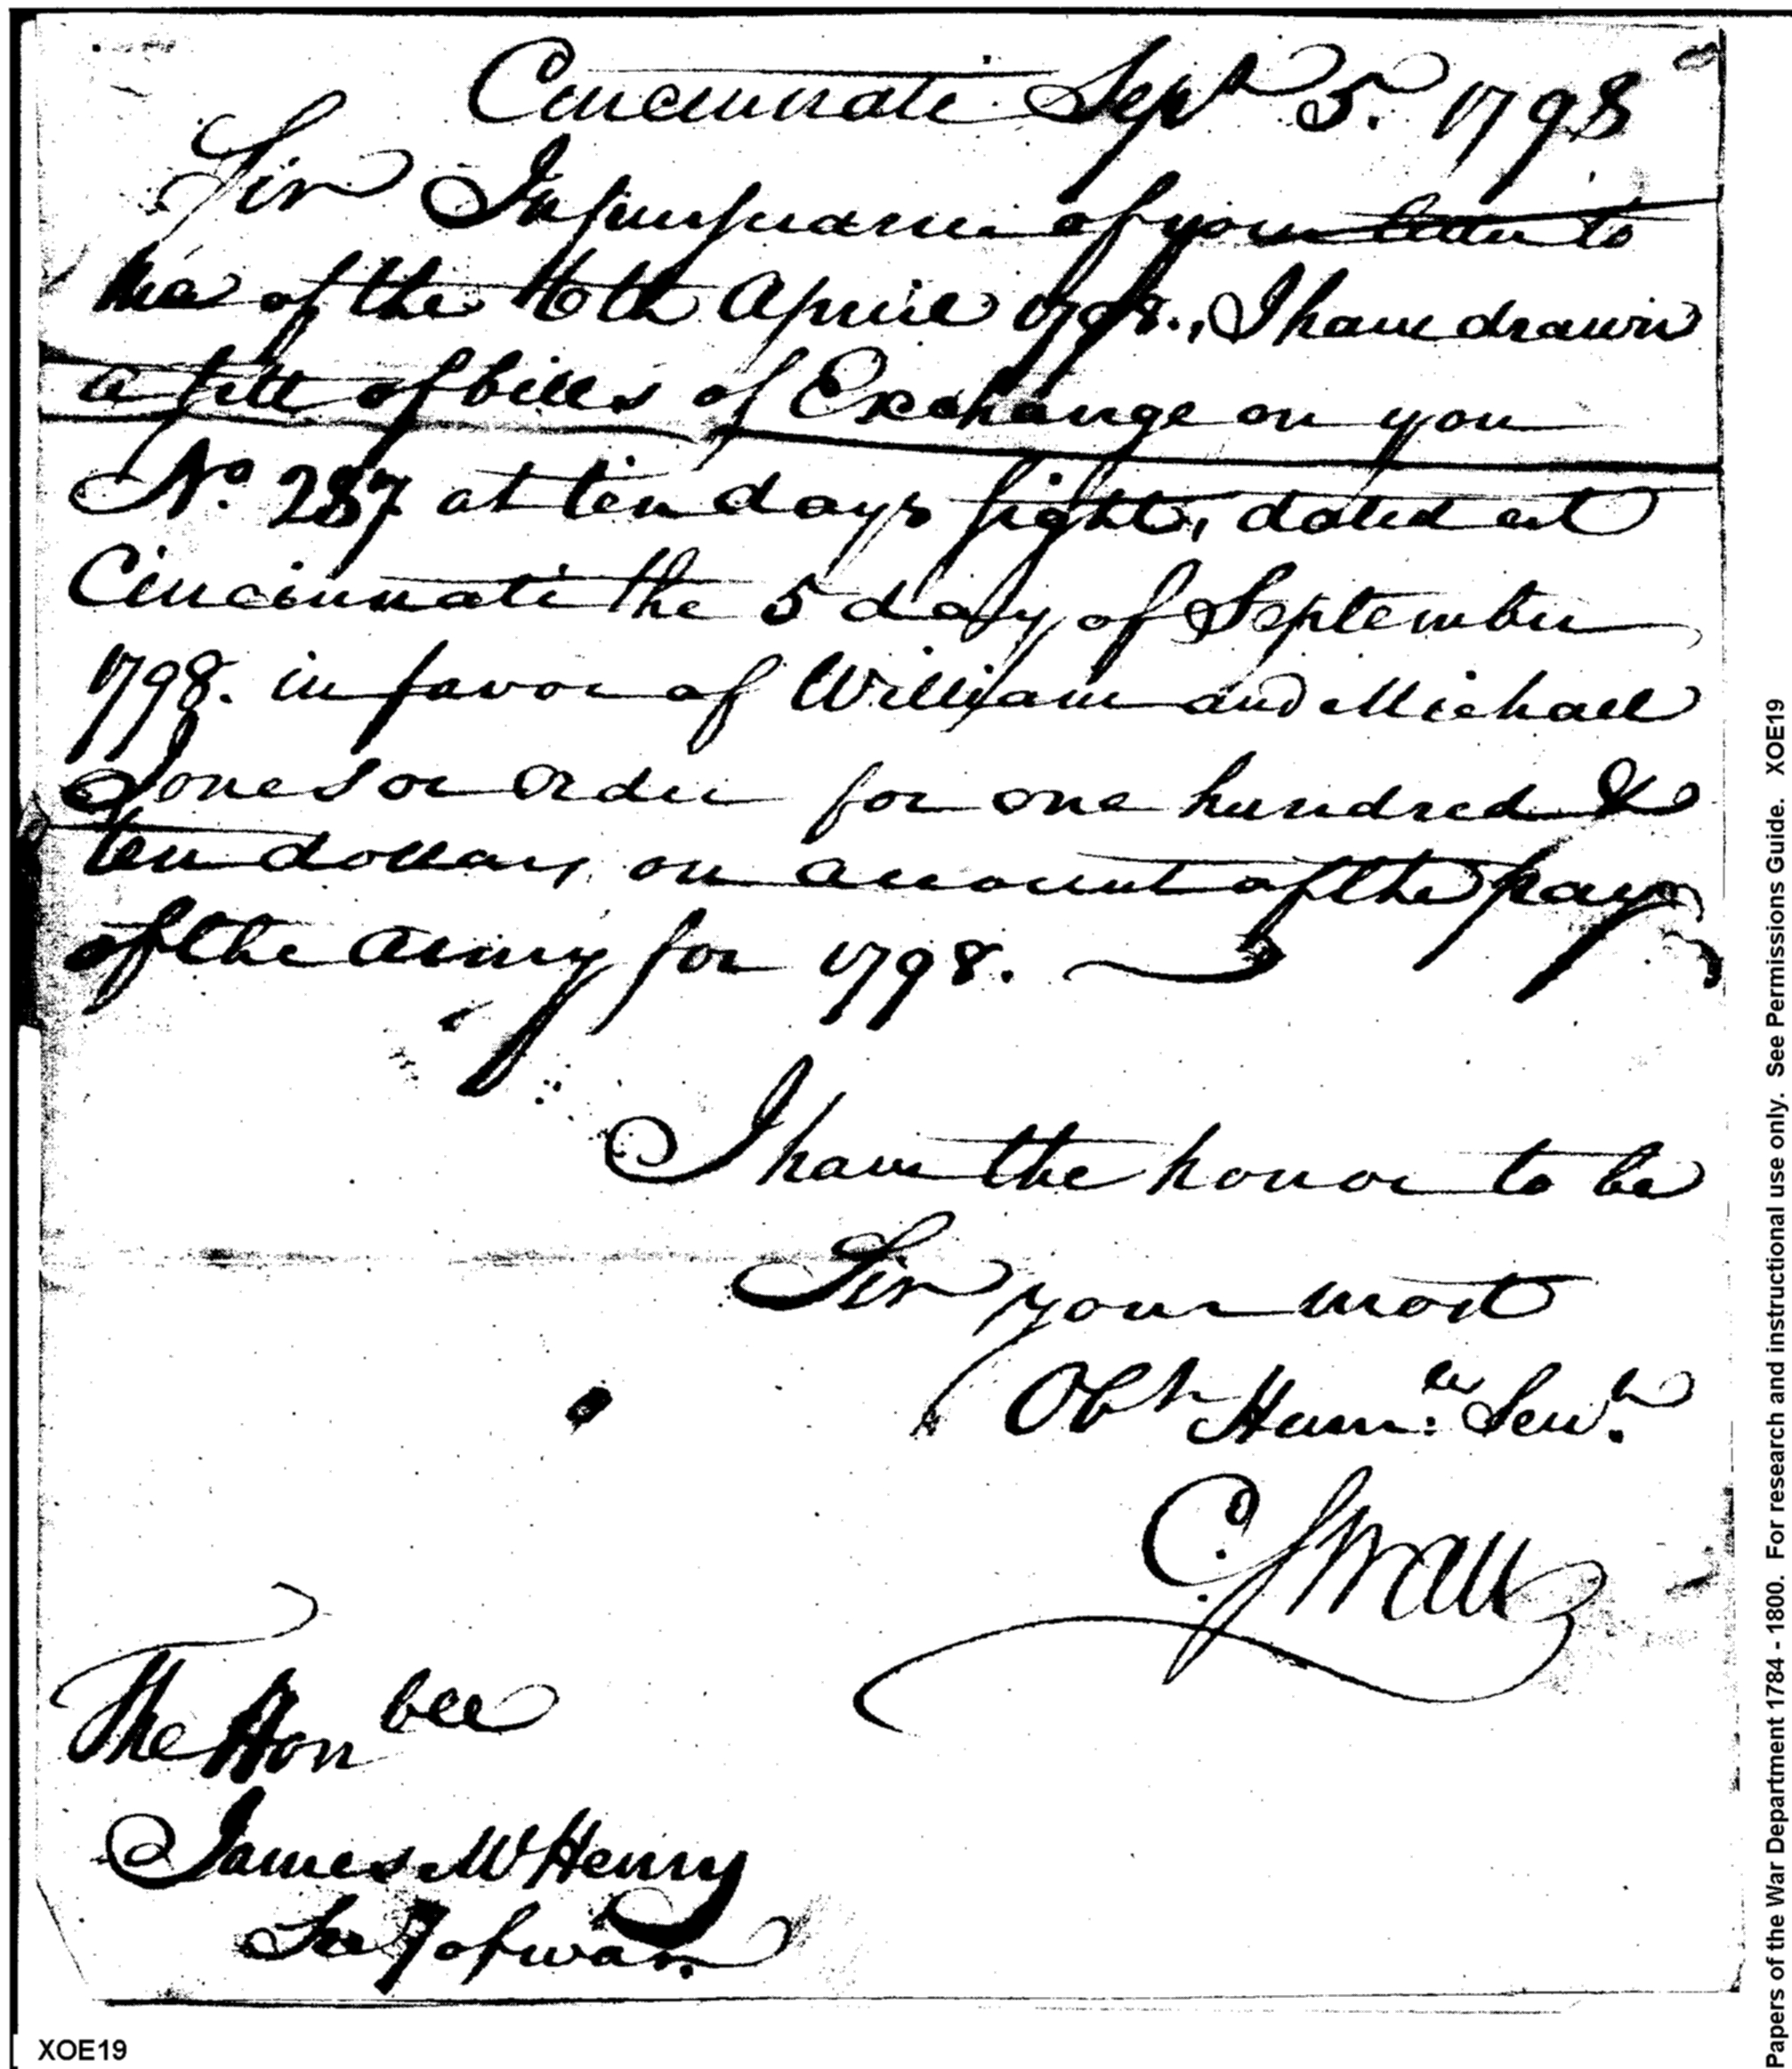 Cincinnati Sept 5. 1798
Sir In pursuance of your letter to
me of the 16th April 1798., I have drawn
a sett of bills of Exchange on you
No. 287 at ten days sight, dated at
Cincinnati the 5 day of September
1798. in favor of William and Michael
Jones or order for one hundred &
ten dollars, on account of the pay
of the army for 1798.
I have the honor to be
Sir your most
Obt Humle Servt
C. Swan
The Honble
James McHenry
Secy of war.
XOE19
Papers of the War Department 1784 - 1800. For research and instructional use only. See Permissions Guide. XOE19